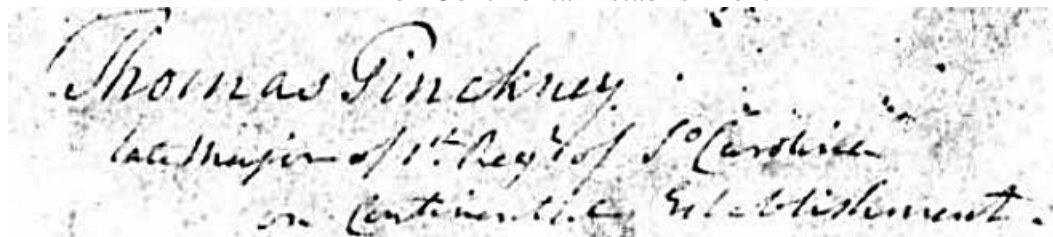 Thomas Pinckney
late Major of 1st. Regt of So Carolina
on Continental Establishment.